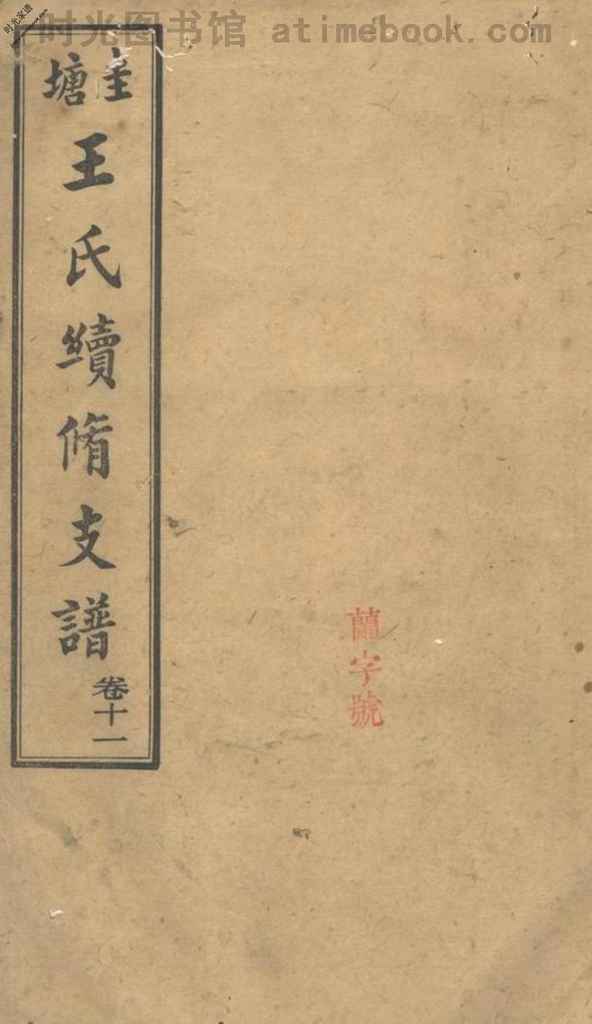 时光图书馆 atimebook.com
时光家谱
圭塘
王氏續脩支譜
卷十一
蘭字號